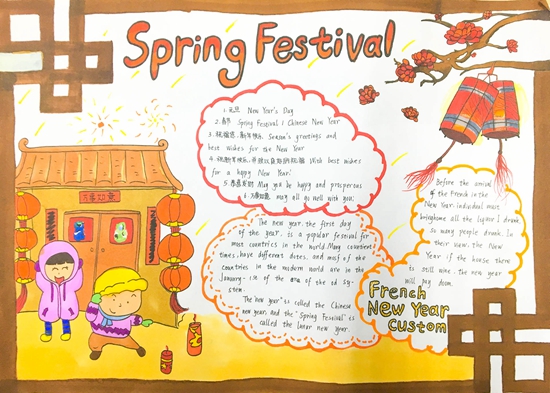 Spring Festival
1. 元旦 New Year's Day
2. 春节 Spring Festival / Chinese New Year
3. 祝福您, 新年快乐 Season's greetings and
best wishes for the New Year
4. 祝新年快乐, 并致以良好的祝福 With best wishes
for a happy New Year!
5. 恭喜发财 May you be happy and prosperous
6. 万事如意 may all go well with you
万事如意
The new year, the first day
of the year, is a popular fesival for
most countries in the world. Many
times, have different dates, and most of the
countries in the modern world are in the
January 1st of the of the ad sy-
stem.
The "new year" is called the Chinese
new year, and the "Spring Festival" is
called the lunar new year.
Before the arrival
of the French in the
New Year, individual must
bring home all the liquor I drank,
so many people drank. In
their view, the New
Year if the house there
is still wine, the new year
will pay doom.
French
New Year
Custom